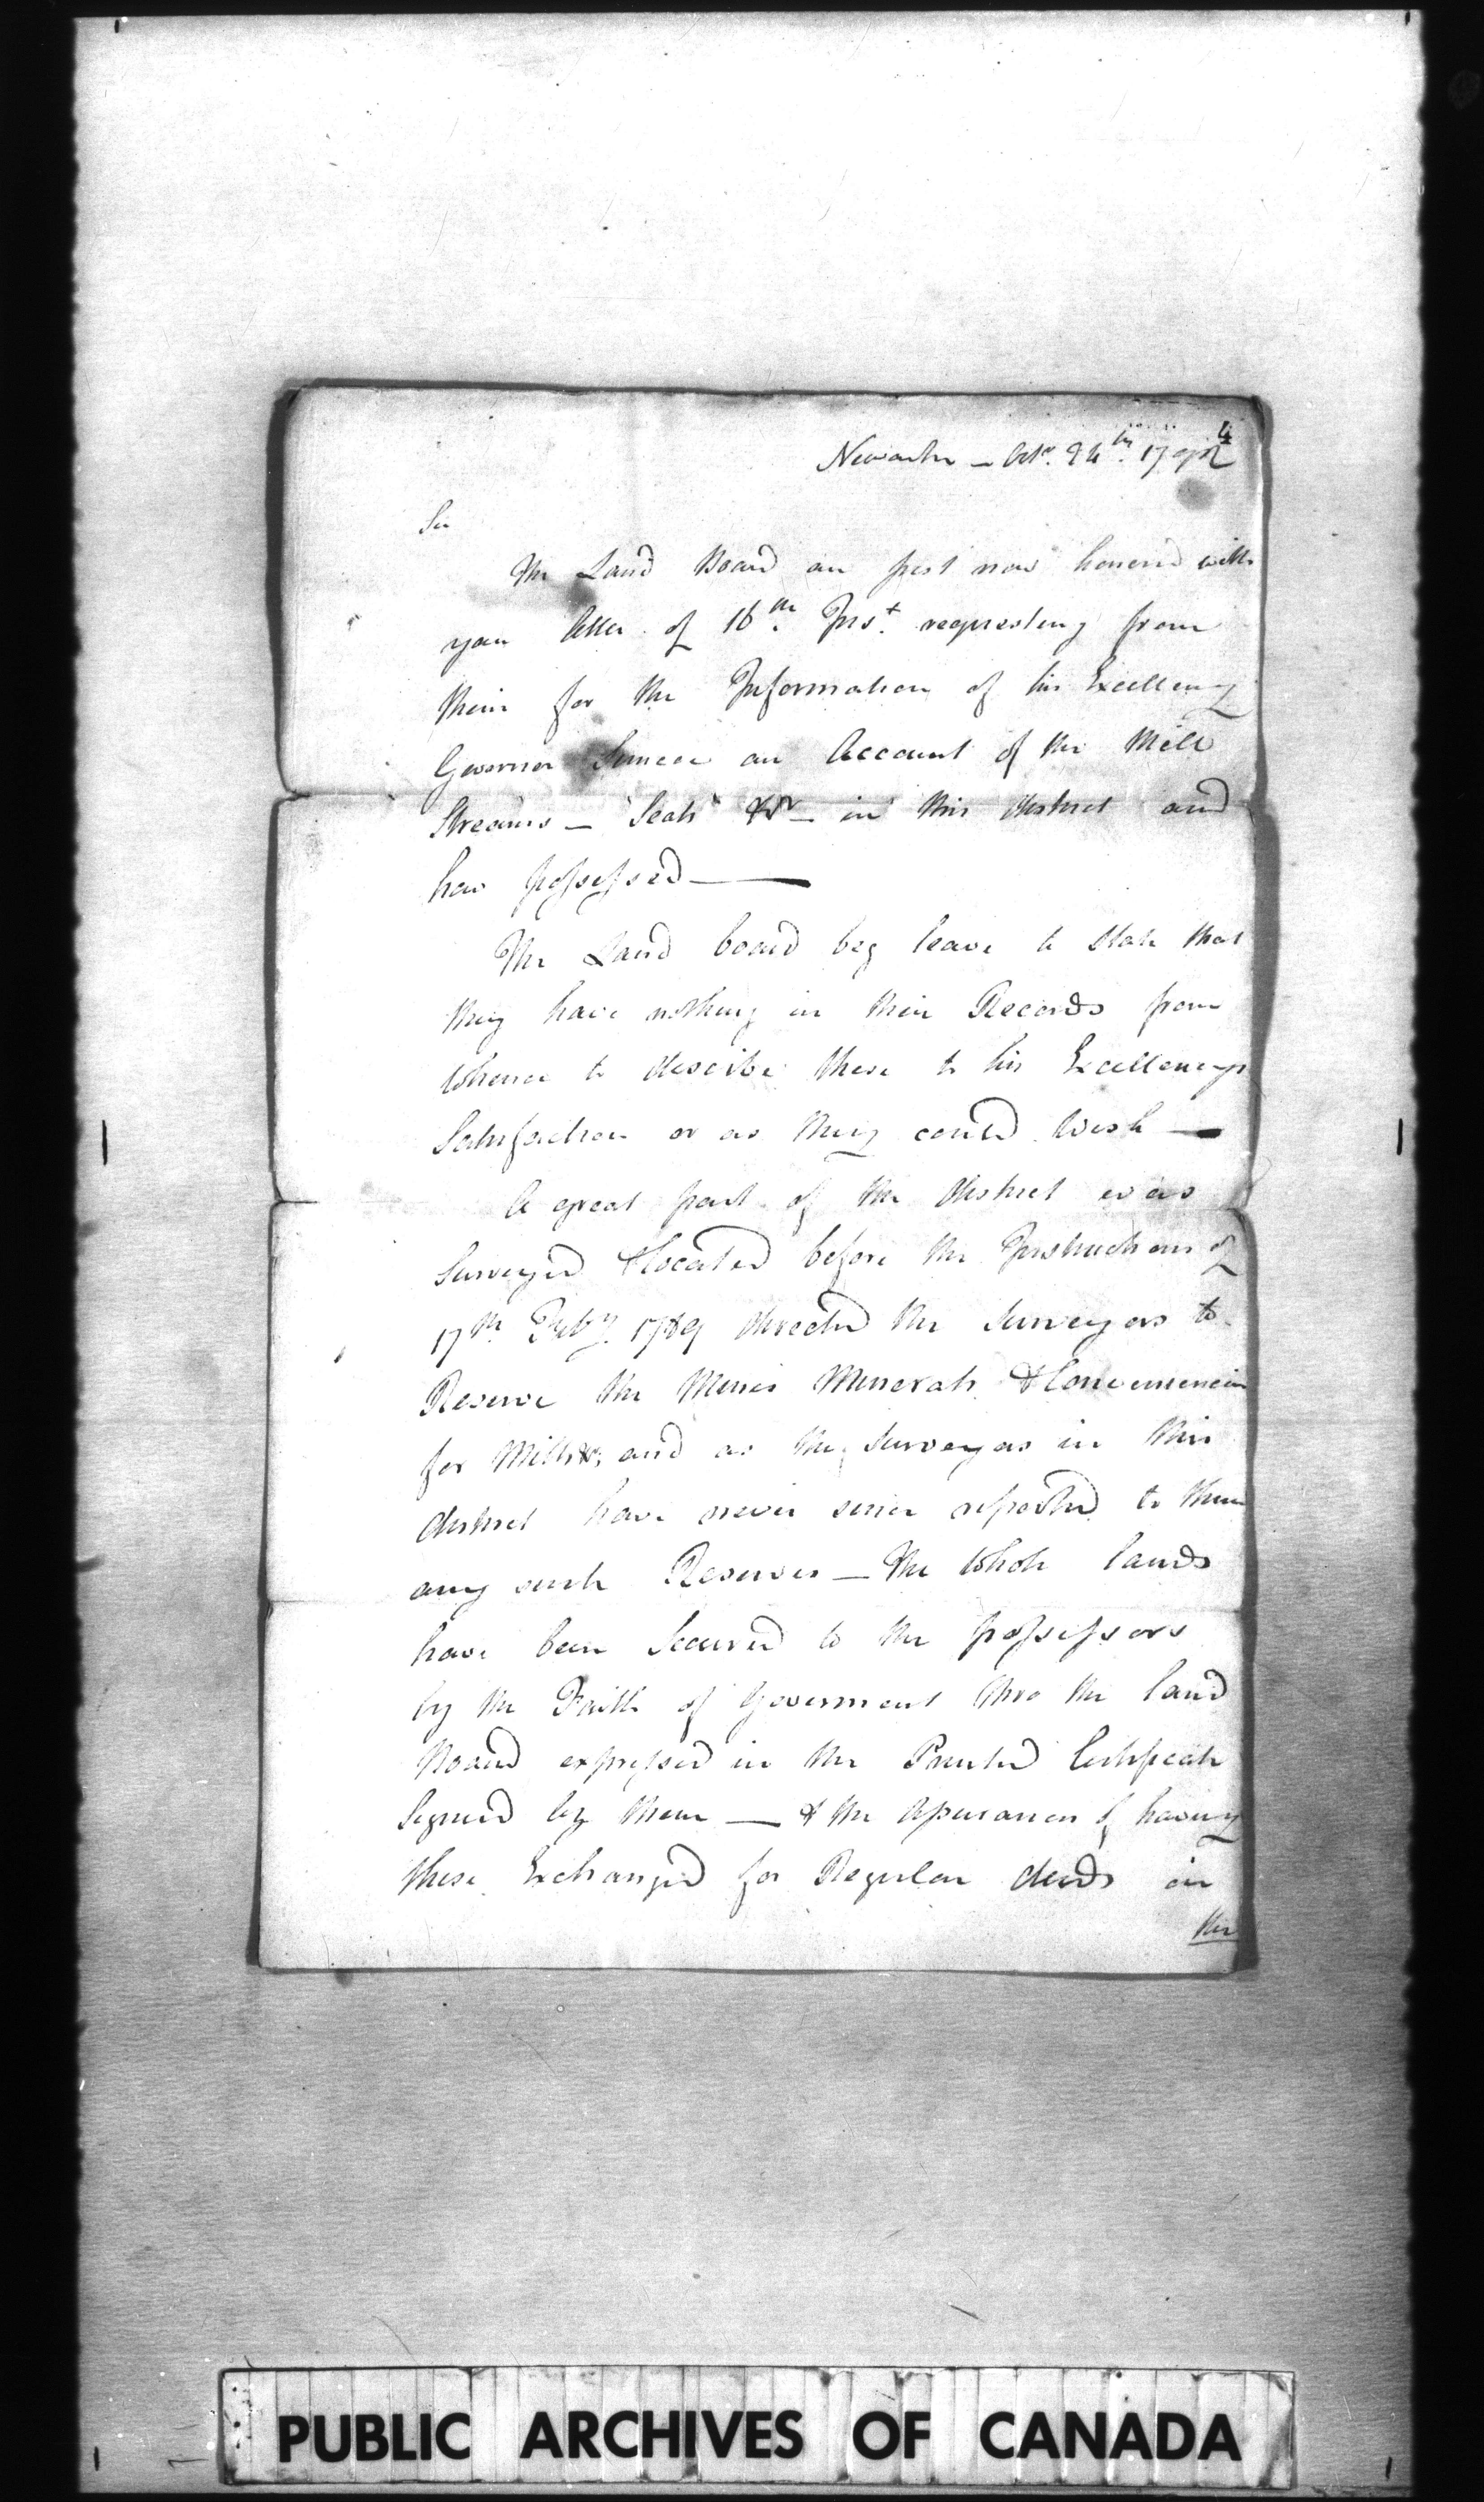 4
Newark — Octr. 24th. 1792
Sir
The Land Board are just now honored with
your letter of 16th. Inst. requesting from
them for the Information of his Excellency
Governor Simcoe an Account of the Mill
Streams — Seats &c — in this district and
how possessed —
The Land board beg leave to state that
they have nothing in their Records from
whence to describe these to his Excellencys
Satisfaction or as they could wish —
A great part of the district was
Surveyed & located before the Instructions of
17th. Feby. 1789 directed the Surveyors to
Reserve the Mines Minerals & Conveniencies
for Mills &c; and as the Surveyors in this
district have never since reported to them
any such Reserves — the whole lands
have been Secured to the possessors
by the Faith of Goverment thro the land
Board expressed in the Printed Certificate
Signed by them — & the Assurances of having
these Exchanged for Regular deeds in
the
PUBLIC ARCHIVES OF CANADA